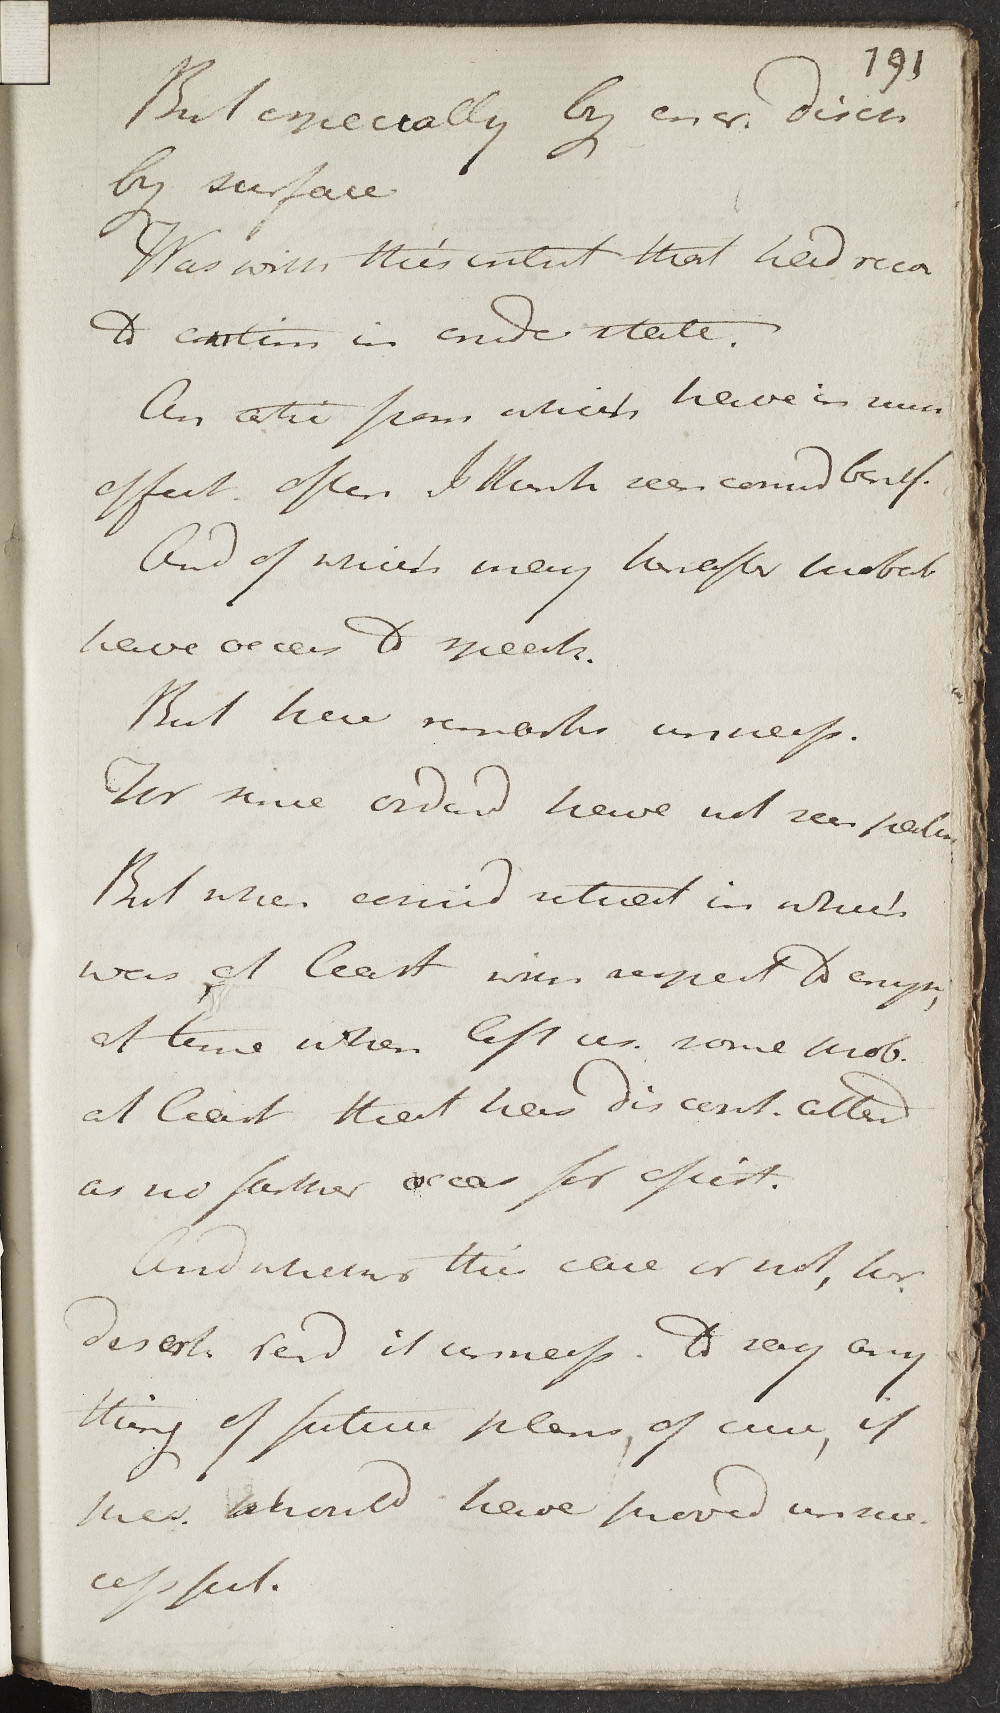 191
But especially by incr. disch
by surface
Was with this intent that had recou
to antim in crude state.
An artic from which have in num
effect. often I think seen considbenef.
And of which may hereafter probab
have occas to speak.
But here remarks unnecess.
For since ordered have not seen patien
But when considd retreat in which
was at least with respect to
at time when left us. some prob.
at least that has discont. attend
as no farther occas for assist.
And whether this case or not, her
desert rend it unnecess. to say any
thing of future plans, of cure, if
pres. should have proved unsuc
cessful.